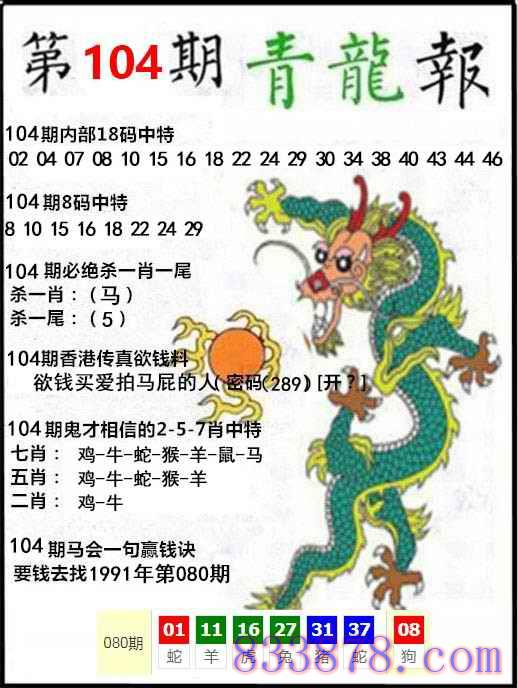 第104期 青龍報
104期内部18码中特
02 04 07 08 10 15 16 18 22 24 29 30 34 38 40 43 44 46
104期8码中特
8 10 15 16 18 22 24 29
104期必绝杀一肖一尾
杀一肖：（马）
杀一尾：（5）
104期香港传真欲钱料
欲钱买爱拍马屁的人(密码(289)[开？]
104期鬼才相信的2-5-7肖中特
七肖： 鸡-牛-蛇-猴-羊-鼠-马
五肖： 鸡-牛-蛇-猴-羊
二肖： 鸡-牛
104期马会一句赢钱诀
要钱去找1991年第080期
080期 01 11 16 27 31 37 08
蛇 羊 虎 兔 猪 蛇 狗
833878.com